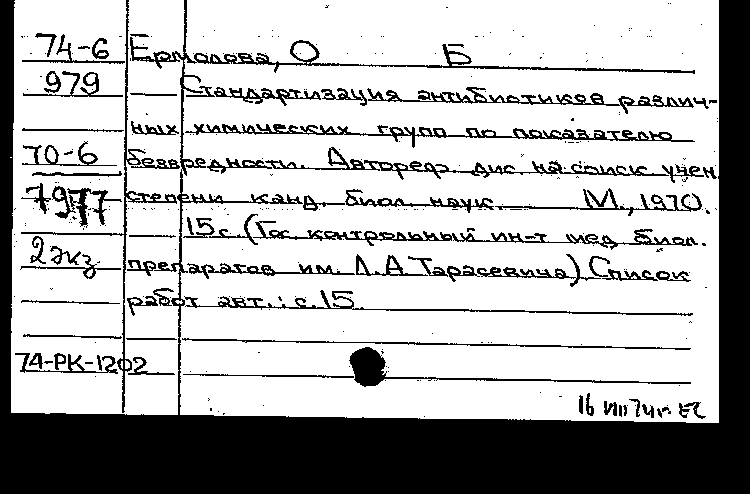 74-6 Ермолова, О Б
979 Стандартизация антибиотиков различ-
ных химических групп по показателю
70-6 безвредности. Автореф. дис. на соиск учен
7977 степени канд. биол. наук. М., 1970.
15с (Гос. контрольный ин-т мед биол.
2 экз препаратов им. Л. А Тарасевича) Список
работ авт.: с. 15
74-РК-1202
16